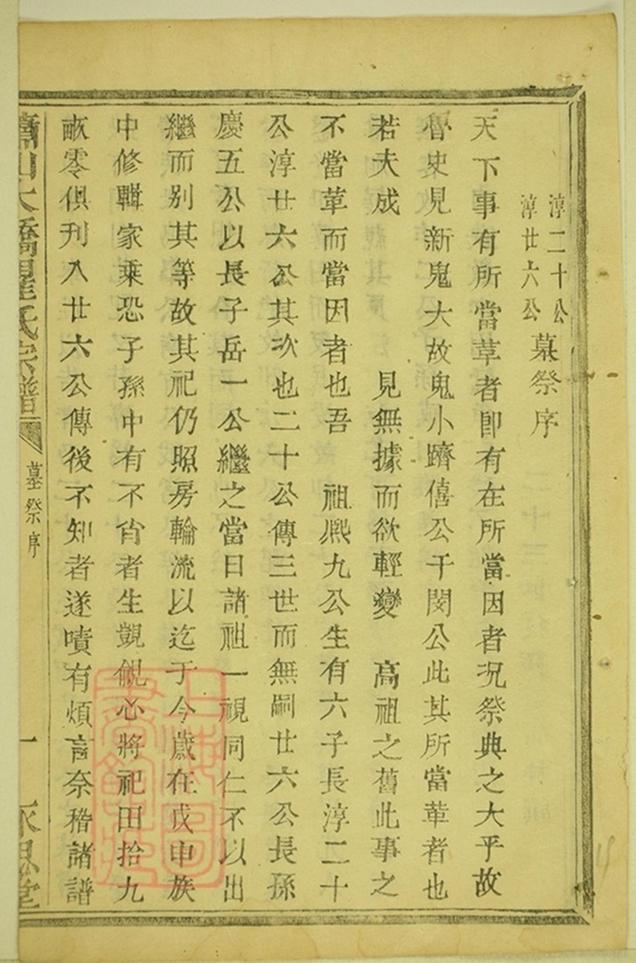 淳二十公
淳廿六公
墓祭序
天下事有所當革者卽有在所當因者况祭典之大乎故
魯史見新鬼大故鬼小躋僖公于閔公此其所當革者也
若夫成 見無據而欲輕變 高祖之舊此事之
不當革而當因者也吾 祖熙九公生有六子長淳二十
公淳廿六公其次也二十公傳三世而無嗣廿六公長孫
慶五公以長子岳一公繼之當日諸祖一視同仁不以出
繼而别其等故其祀仍照房輪流以迄于今歲在戊申族
中修輯家乗恐子孫中有不肖者生覬覦心將祀田拾九
畝零俱刋入廿六公傳後不知者遂嘖有煩言奈稽諸譜
蕭山大橋 氏宗譜
墓祭序
一
永思堂